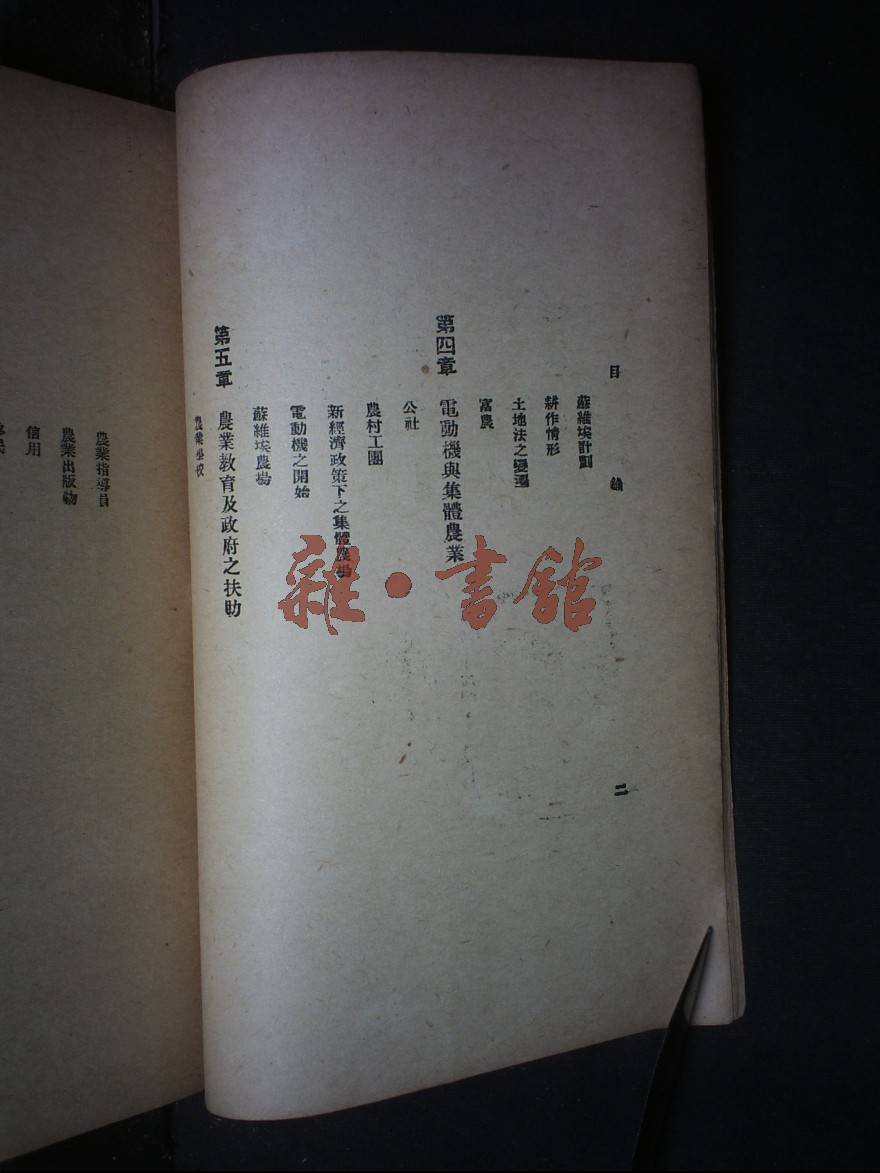 目錄
二
蘇維埃計劃
耕作情形
土地法之變遷
富農
第四章 電動機與集體農業
公社
農村工團
新經濟政策下之集體農場
電動機之開始
蘇維埃農場
第五章 農業教育及政府之扶助
農業學校
農業指導員
農業出版物
信用
雜·書館